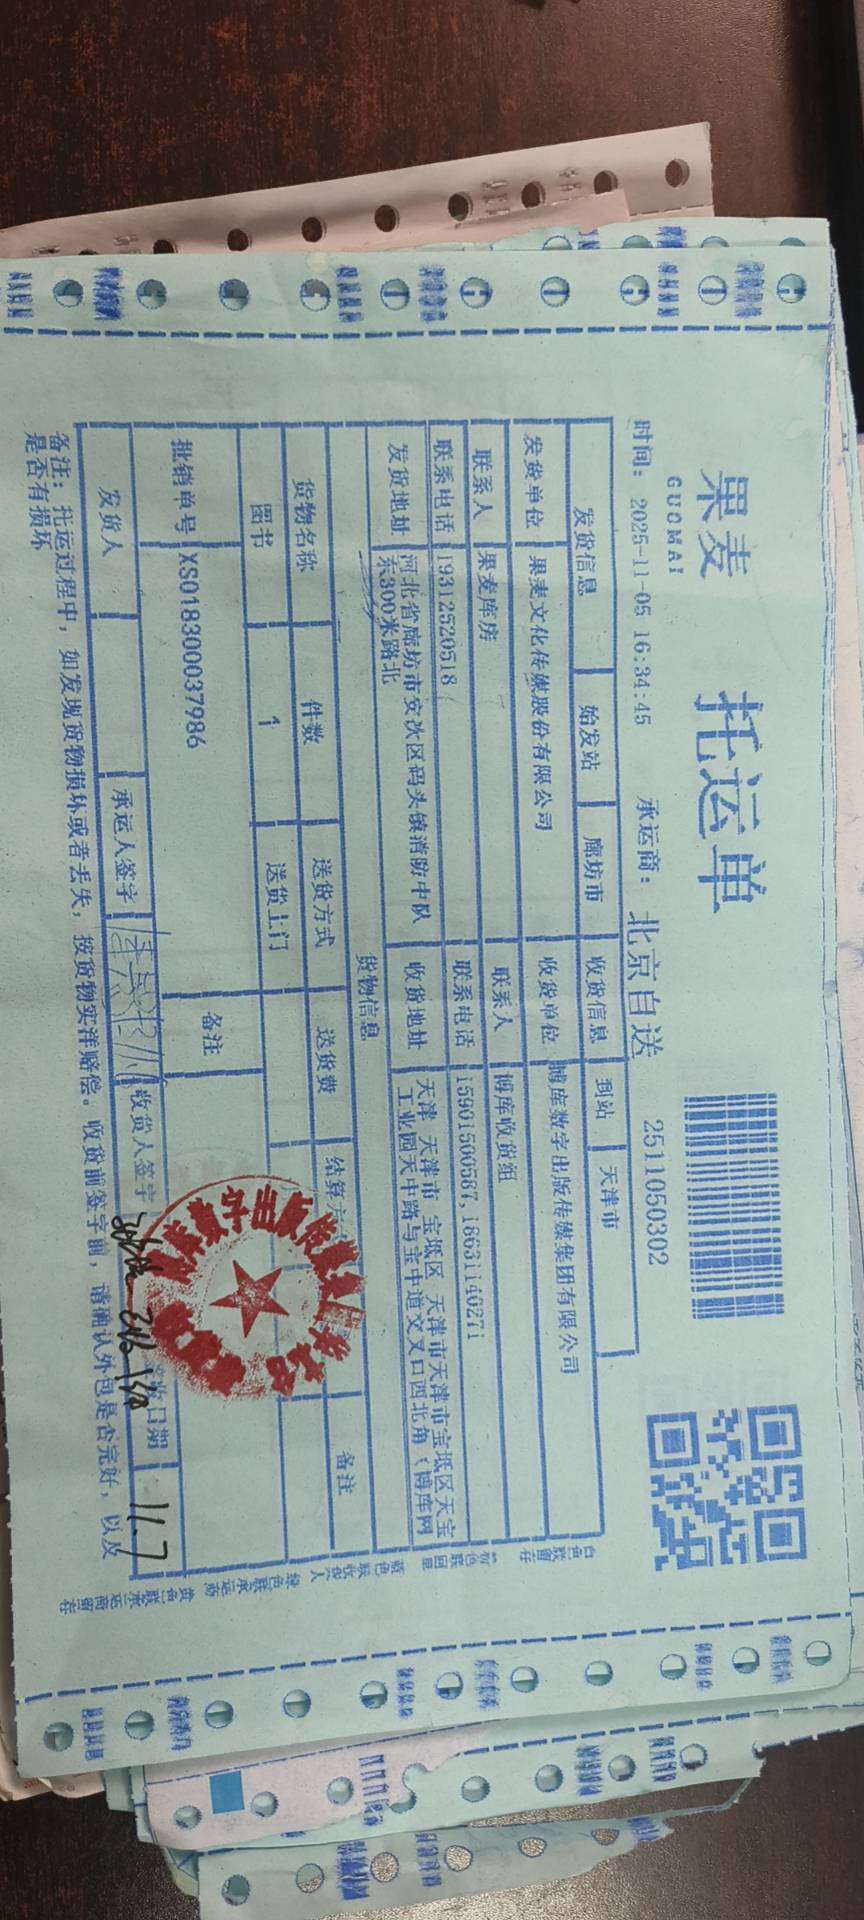 果麦
GUOMAI
托运单
时间: 2025-11-05 16:34:45
承运商: 北京自送
2511050302
发货信息 始发站 廊坊市 收货信息 到站 天津市
发货单位 果麦文化传媒股份有限公司 收货单位 博库数字出版传媒集团有限公司
联系人 果麦库房 联系人 博库收货组
联系电话 19312520518 联系电话 15901500587,18631140271
发货地址 河北省廊坊市安次区码头镇消防中队东300米路北 收货地址 天津 天津市 宝坻区 天津市天津市宝坻区天宝工业园天中路与宝中道交叉口西北角（博库网
货物信息
货物名称 件数 送货方式 送货费 结算方 备注
图书 1 送货上门
批销单号 XS018300037986 备注
发货人 承运人签字 收货人签字 日期 11.7
备注: 托运过程中，如发现货物损坏或者丢失，按货物实洋赔偿。收货前签字前，请确认外包是否完好，以及
是否有损坏
白色联留存
粉色联回单
蓝色联收货人
绿色联承运商
黄色联承运商留存